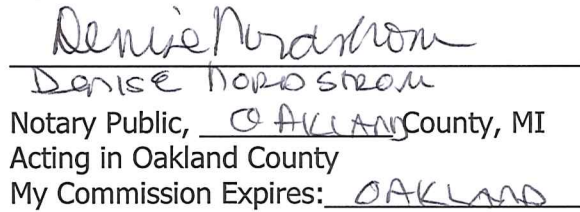 Denise Nordstrom
Denise Nordstrom
Notary Public, OAKLAND County, MI
Acting in Oakland County
My Commission Expires: OAKLAND